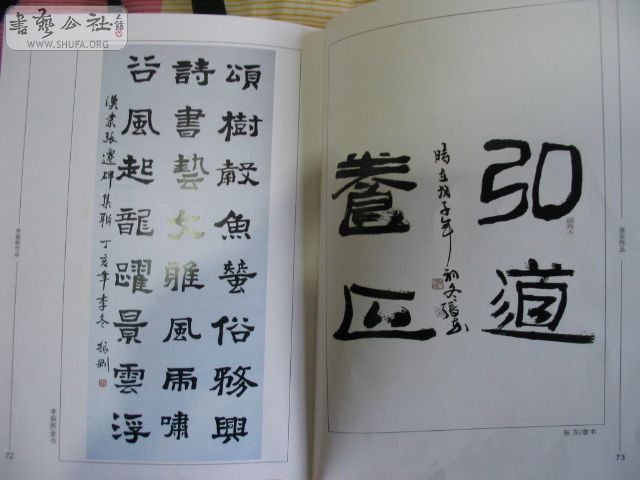 書藝公社
WWW.SHUFA.ORG
頌樹殽魚螢俗務興
詩書藝文雅風雨嘯
谷風起龍躍景雲浮
張遷碑集联 丁亥年季冬 振刚
李振刚作品
李振刚/隶书
72
弘道
養正
時在戊子年初冬張东
张东作品
张 东/隶书
73